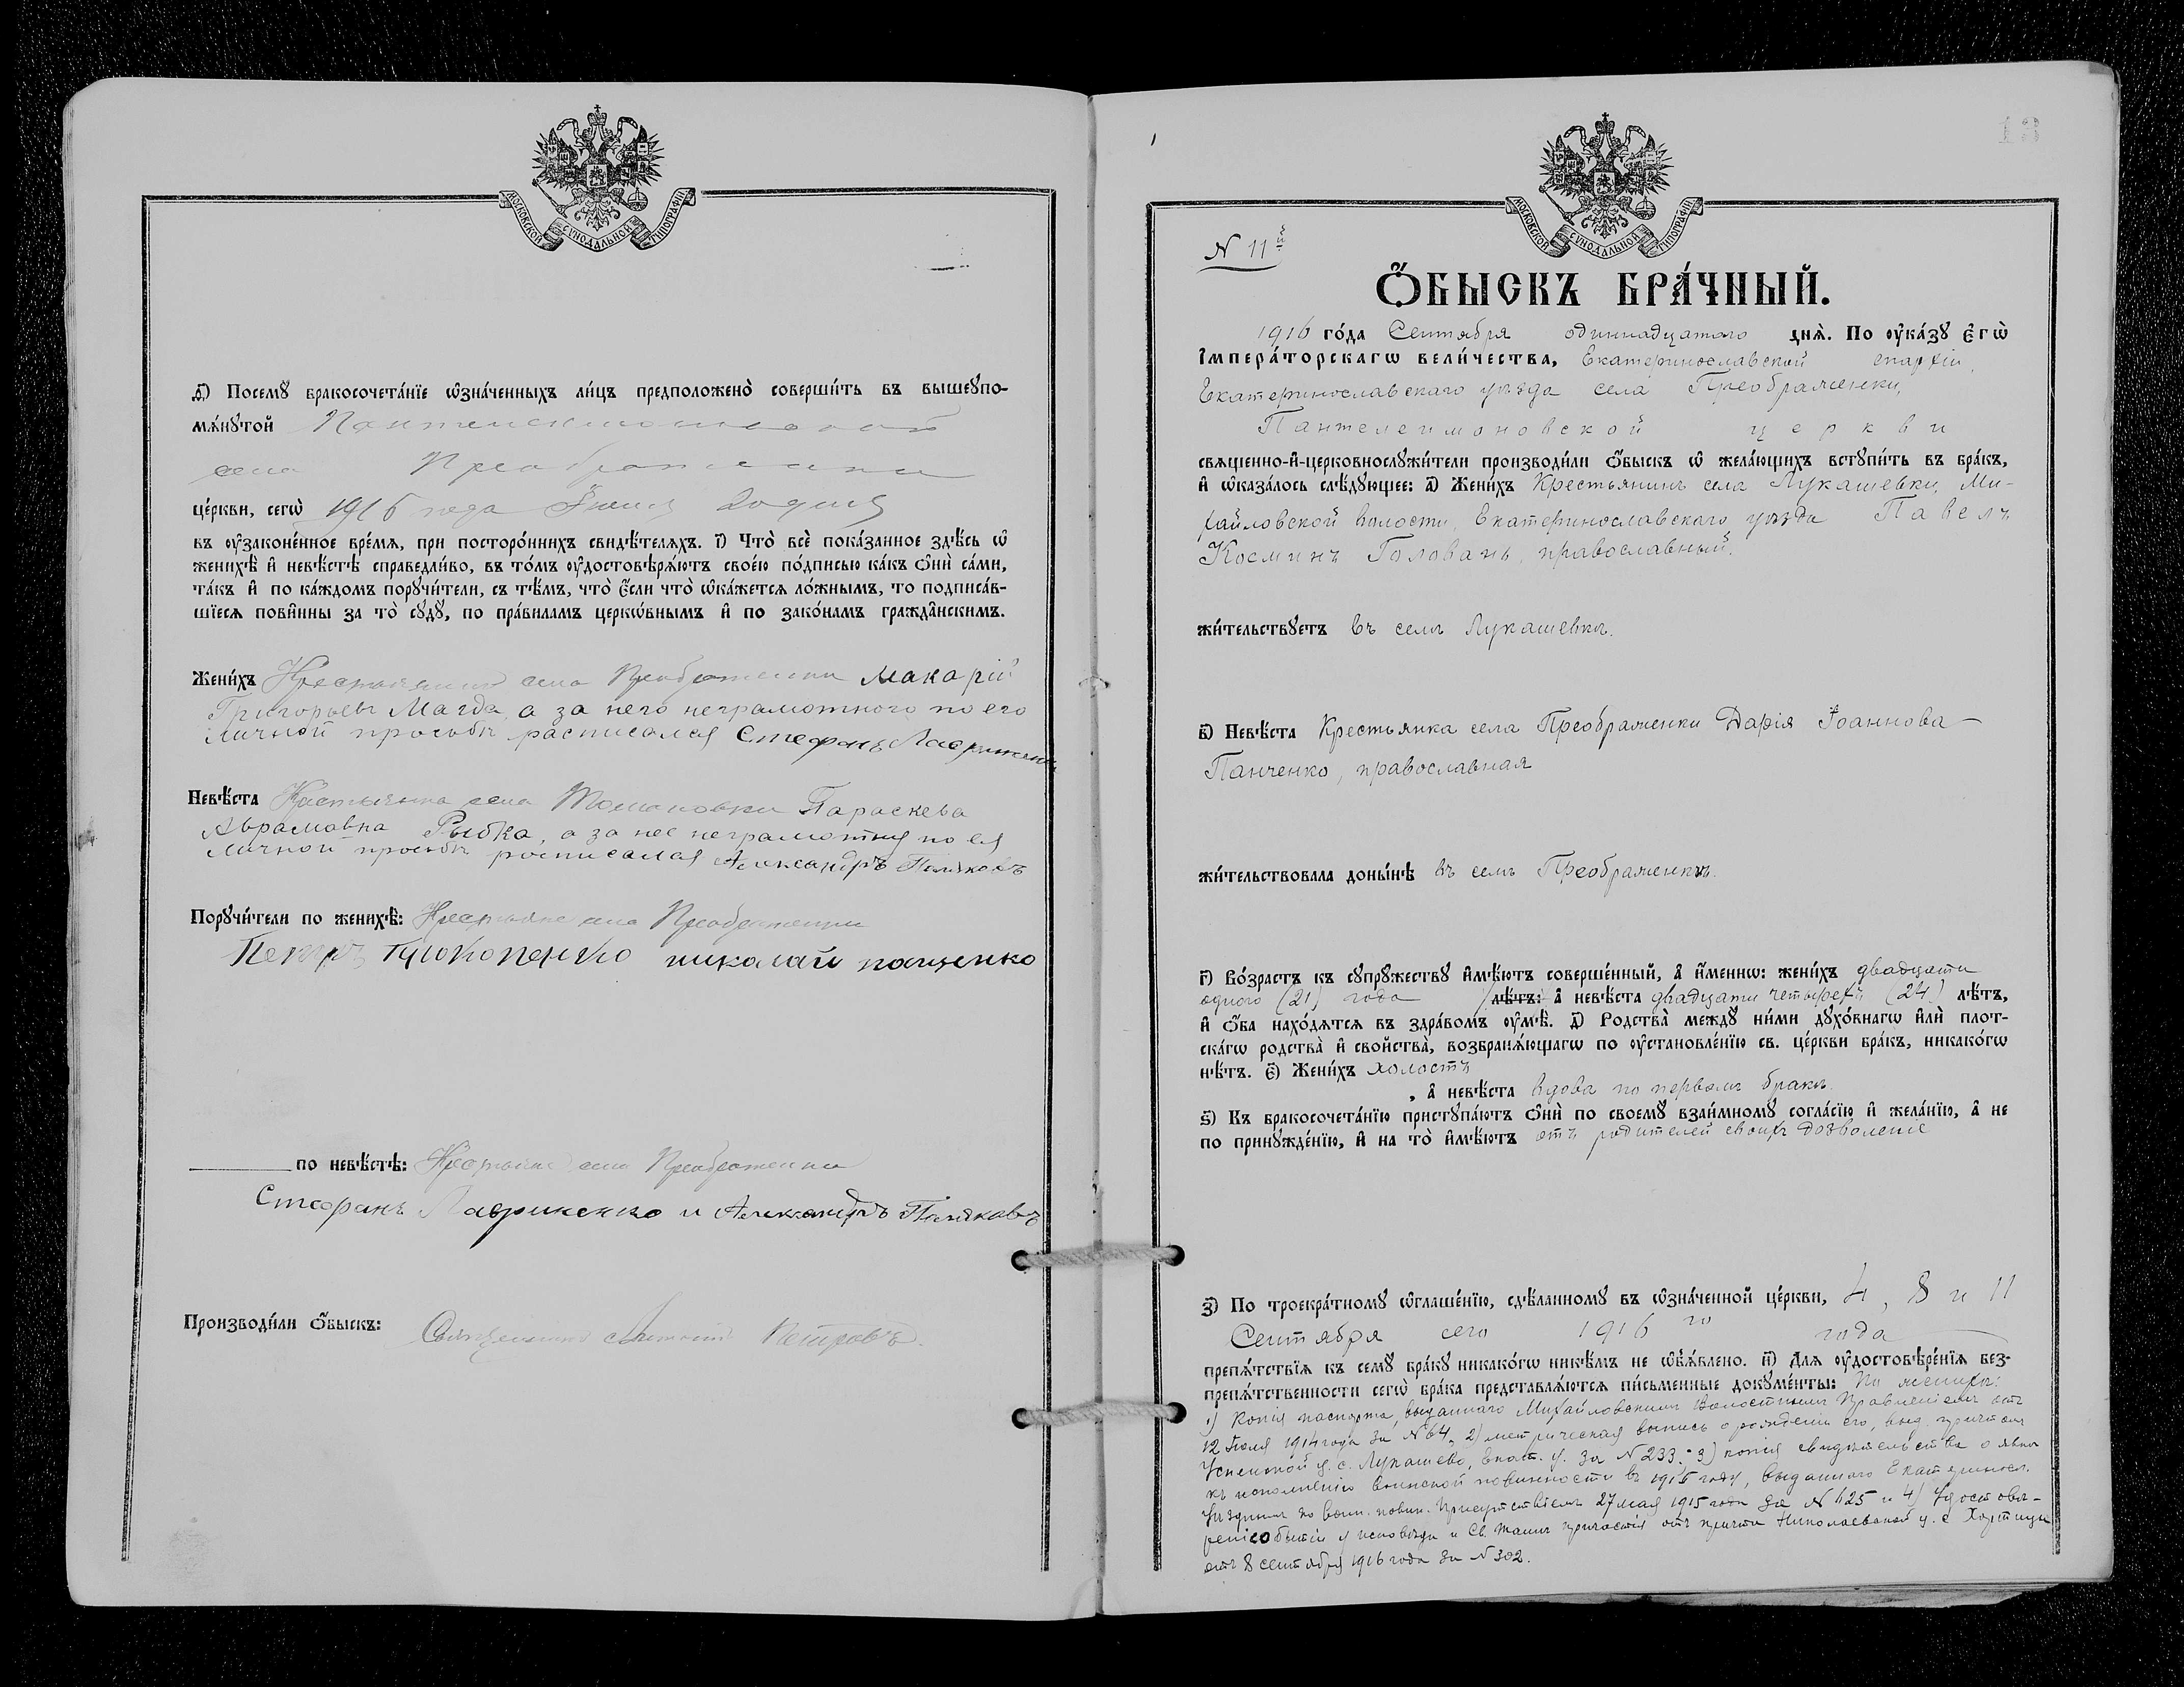 МОСКОВСКОЙ СѴНОДАЛЬНОЙ ТИПОГРАФІИ
Посемꙋ̀ бракосочета́нїе ѡ҆зна́ченныхъ ли́цъ предположено̀ соверши́ть въ вышеꙋпо-
мѧ́нꙋтой Пантелеимоновской
села Преображенки
це́ркви, сегѡ̀ 1916 года дня
въ ᲂу҆зако́ненное вре́мѧ, при посторо́ннихъ свидѣ́телѧхъ. і҃) Что̀ всѐ пока́занное здѣ́сь ѡ҆
женихѣ̀ и҆ невѣ́стѣ справедли́во, въ то́мъ ᲂу҆достовѣрѧ́ютъ свое́ю по́дписью ка́къ ѻ҆нѝ са́ми,
та́къ и҆ по ка́ждомъ порꙋчи́тели, съ тѣ́мъ, что̀ є҆́сли что̀ ѡ҆ка́жетсѧ ло́жнымъ, то подписа́в-
шїесѧ пови́нны за то̀ сꙋдꙋ̀, по пра́виламъ церко́внымъ и҆ по зако́намъ гражда́нскимъ.
Жени́хъ Крестьянинъ села Преображенки Макарій
Григорьевъ Магда, а за него неграмотного по его
личной просьбѣ расписался Стефанъ Лавриненко
Невѣ́ста Крестьянка села Томаковки Параскева
Аврамовна Рыбка, а за нее неграмотную по ея
личной просьбѣ росписался Александръ Поляковъ
Порꙋчи́тели по женихѣ̀: Крестьяне села Преображенки
Петръ Прокопенко николай пащенко
по невѣ́стѣ: Крестьяне села Преображенки
Стефанъ Лавриненко и Александръ Поляковъ
Производи́ли ѻ҆́быскъ: Священникъ Петровъ.
13
МОСКОВСКОЙ СѴНОДАЛЬНОЙ ТИПОГРАФІИ
N 11й
Ѻ҆́БЫСКЪ БРА́ЧНЫЙ.
1916 го́да Сентября одиннадцатого днѧ̀. По ᲂу҆ка́зꙋ є҆гѡ̀
і҆мпера́торскагѡ вели́чества, Екатеринославской епархіи,
Екатеринославскаго уѣзда села Преображенки,
Пантелеимоновской церкви
свѧще́нно-и҆-церковнослꙋжи́тели производи́ли ѻ҆́быскъ ѡ҆ жела́ющихъ встꙋпи́ть въ бра́къ,
и҆ ѡ҆каза́лось слѣ́дꙋющее: а҃) Жени́хъ Крестьянинъ села Лукашевки, Ми-
хайловской волости, Екатеринославскаго уѣзда Павелъ
Косминъ Головань, православный.
жи́тельствꙋетъ въ селѣ Лукашевкѣ.
в҃) Невѣ́ста Крестьянка села Преображенки Дарія Іоаннова
Панченко, православная
жи́тельствовала доны́нѣ въ селѣ Преображенкѣ.
г҃) Во́зрастъ къ сꙋпрꙋ́жествꙋ и҆мѣ́ютъ соверше́нный, а҆ и҆́меннѡ: жени́хъ двадцати
одного (21) года лѣ́тъ: а҆ невѣ́ста двадцати четырехъ (24) лѣ́тъ,
и҆ ѻ҆́ба нахо́дѧтсѧ въ здра́вомъ ᲂу҆мѣ̀. д҃) Родства̀ междꙋ̀ ни́ми дꙋхо́внагѡ и҆лѝ плот-
ска́гѡ родства̀ и҆ сво́йства̀, возбранѧ́ющагѡ по ᲂу҆становле́нїю св. це́ркви бра́къ, никако́гѡ
нѣ́тъ. є҃) Жени́хъ холостъ
, а҆ невѣ́ста вдова по первомъ бракѣ.
ѕ҃) Къ бракосочета́нїю пристꙋпа́ютъ ѻ҆нѝ по своемꙋ̀ взаи́мномꙋ согла́сїю и҆ жела́нїю, а҆ не
по принꙋжде́нїю, и҆ на то̀ и҆мѣ́ютъ отъ родителей своихъ дозволеніе
з҃) По троекра́тномꙋ ѡ҆глаше́нїю, сдѣ́ланномꙋ въ ѡ҆зна́ченной це́ркви, 4, 8 и 11
Сентября сего 1916 го года
препѧ́тствїѧ къ семꙋ̀ бра́кꙋ никако́гѡ никѣ́мъ не ѡ҆б̾ѧ́влено. и҃) Длѧ ᲂу҆достовѣре́нїѧ без-
препѧ́тственности сегѡ̀ бра́ка представлѧ́ютсѧ пи́сьменные докꙋме́нты: По женихѣ:
1) Копія паспорта, выданнаго Михайловскимъ Волостнымъ Правленіемъ отъ
12 Іюля 1914 года за N 64, 2) метрическая выпись о рожденіи его, выд. причтомъ
Успенской ц. с. Лукашево, Екат. у. за N 233; 3) копія свидѣтельства о явкѣ
къ исполненію воинской повинности въ 1915 году, выданнаго Екатериносл.
Уѣзднымъ по воин. повин. Присутствіемъ 27 мая 1915 года за N 425 и 4) Удостовѣ-
реніе о бытіи у исповѣди и Св. Таинъ причастія отъ причта Николаевской ц. с. Хортицы
отъ 8 сентября 1916 года за N 302.